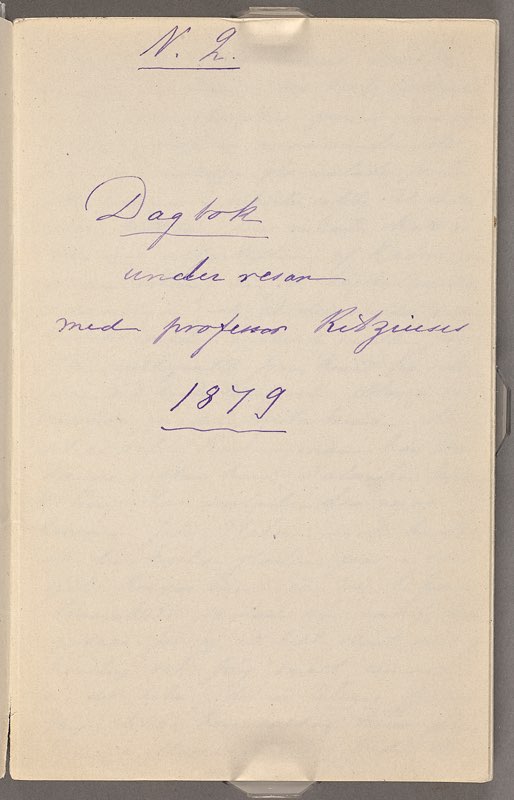 N. 2.
Dagbok
under resan
med professor Retziuses
1879